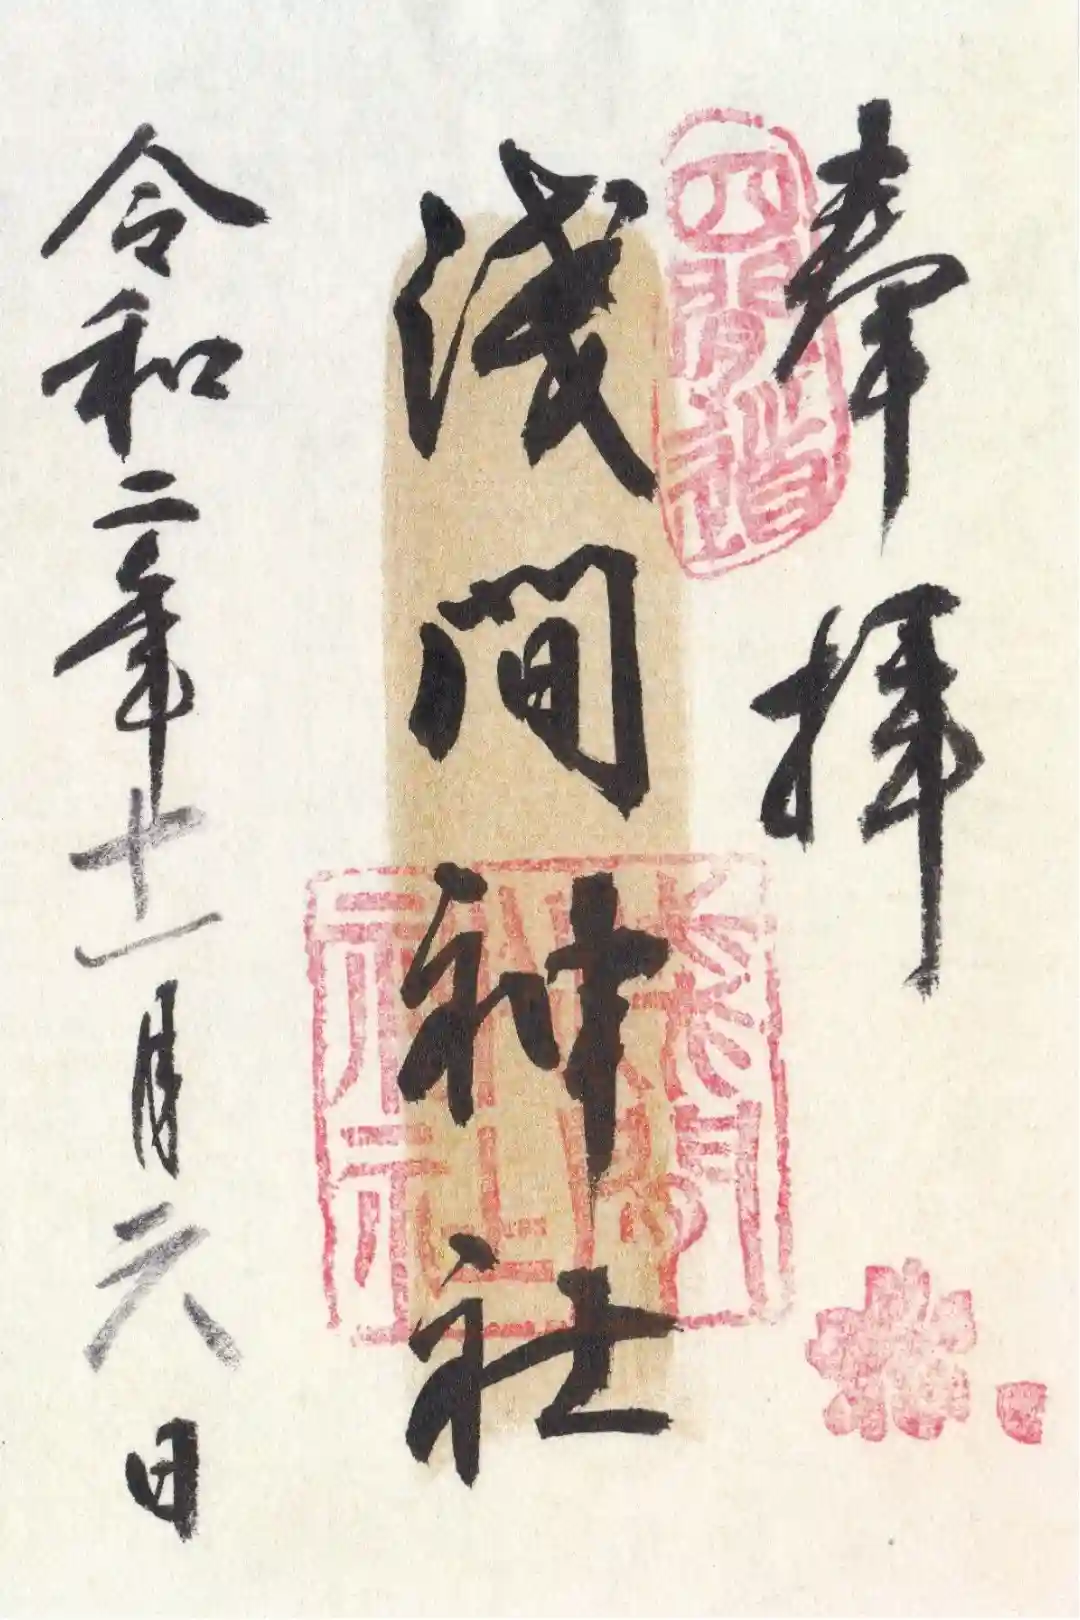 奉拝
浅間神社
令和二年十一月六日